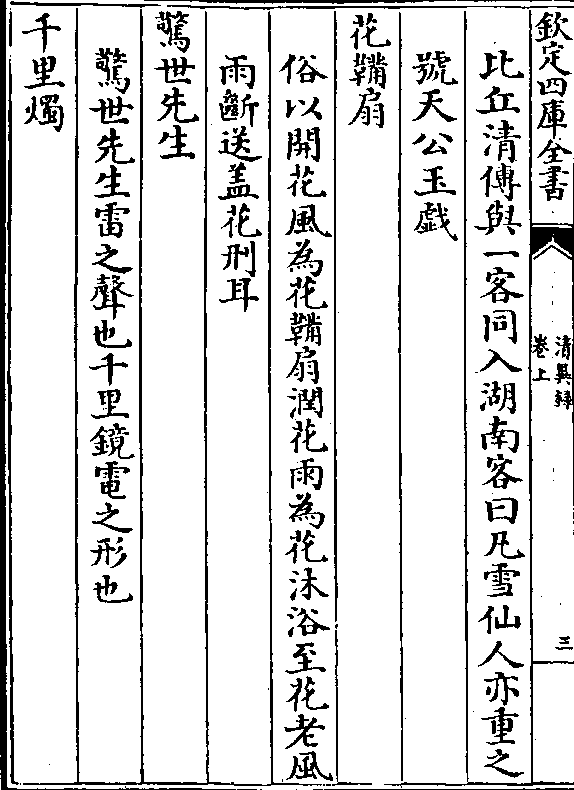 欽定四庫全書
清異録
卷上
三
比丘清傳與一客同入湖南客曰凡雪仙人亦重之
號天公玉戱
花鞴扇
俗以開花風為花鞴扇潤花雨為花沐浴至花老風
雨斷送盖花刑耳
驚世先生
驚世先生雷之聲也千里鏡電之形也
千里燭